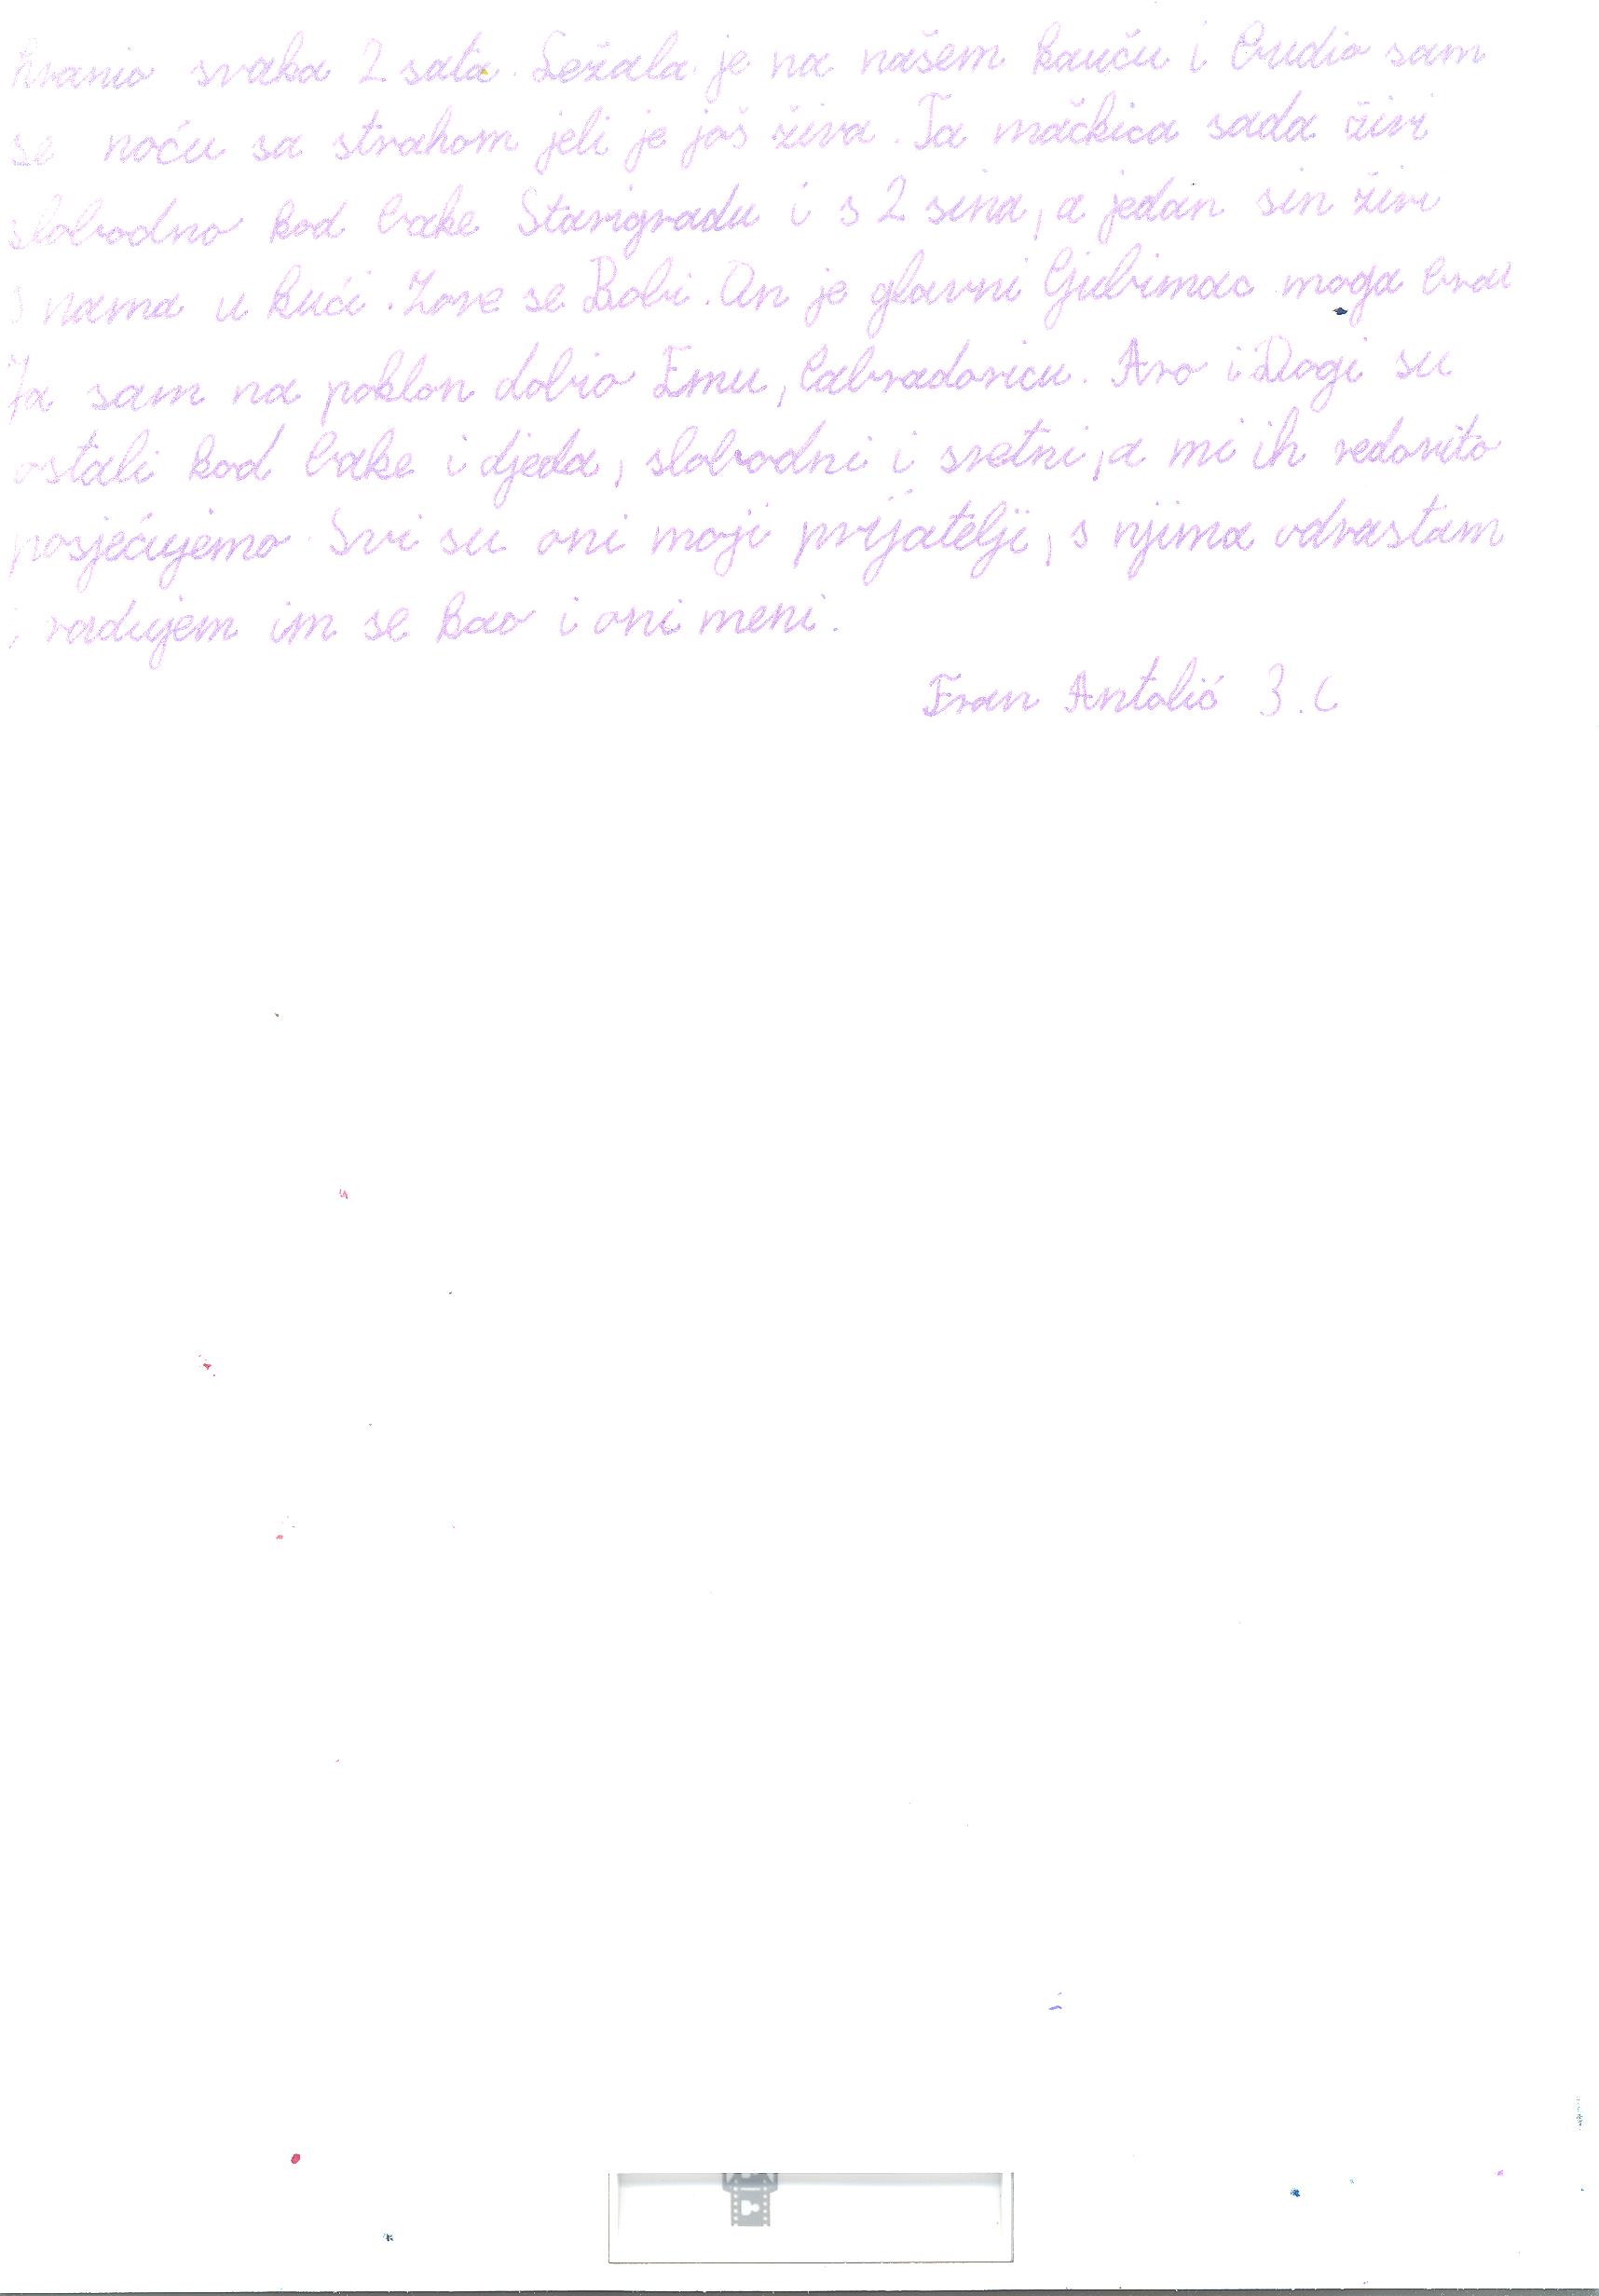 hranio svaka 2 sata. Ležala je na našem kauču i budio sam
se noću sa strahom jeli je još živa. Ta mačkica sada živi
slobodno kod bake Starigradu i s 2 sina, a jedan sin živi
s nama u kući. Zove se Bobi. On je glavni ljubimac moga
Ja sam na poklon dobio Emu, labradoricu. Aro i Dogi su
ostali kod bake i djeda, slobodni i sretni, a mi ih redovito
posjećujemo. Svi su oni moji prijatelji, s njima odrastam
i radujem im se kao i oni meni.
Fran Antolić 3.C